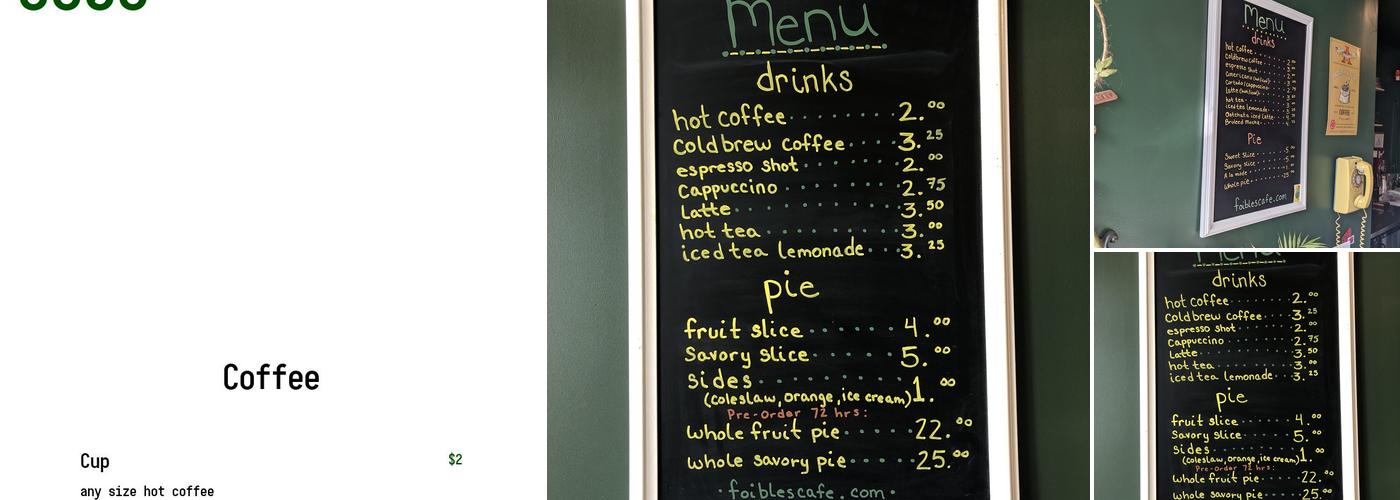 Coffee
Cup $2
any size hot coffee
Menu
drinks
hot coffee 2.00
Cold brew coffee 3.25
espresso shot 2.00
Cappuccino 2.75
Latte 3.50
hot tea 3.00
iced tea lemonade 3.25
pie
fruit slice 4.00
Savory slice 5.00
sides 1.00
(coleslaw, orange, ice cream)
Pre-Order 72 hrs:
whole fruit pie 22.00
whole savory pie 25.00
foiblescafe.com
Menu
drinks
hot coffee
Cold brew coffee
espresso shot
hot tea
iced tea lemonade
Pie
Sweet slice
Savory slice
A la mode
Whole pie
foiblescafe.com
Menu
drinks
hot coffee 2.00
Cold brew coffee 3.25
espresso shot 2.00
Cappuccino 2.75
Latte 3.50
hot tea 3.00
iced tea lemonade 3.25
pie
fruit slice 4.00
Savory slice 5.00
sides 1.00
(coleslaw, orange, ice cream)
Pre-Order 72 hrs:
whole fruit pie 22.00
whole savory pie 25.00